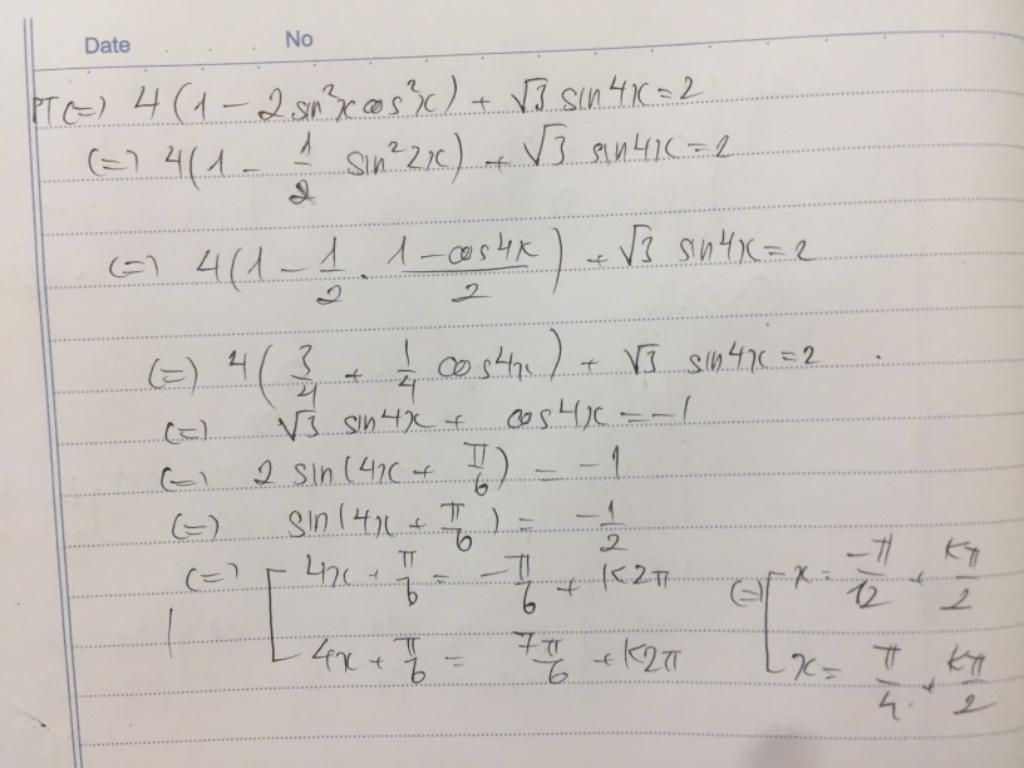 Date No
PT (=) 4(1 - 2 sin²x cos²x) + √3 sin4x = 2
(=) 4(1 - 1/2 sin²2x) + √3 sin4x = 2
(=) 4(1 - 1/2 . (1 - cos4x)/2) + √3 sin4x = 2
(=) 4(3/4 + 1/4 cos4x) + √3 sin4x = 2
(=) √3 sin4x + cos4x = -1
(=) 2 sin(4x + π/6) = -1
(=) sin(4x + π/6) = -1/2
(=) [ 4x + π/6 = -π/6 + k2π (=) [ x = -π/12 + kπ/2
4x + π/6 = 7π/6 + k2π x = π/4 + kπ/2